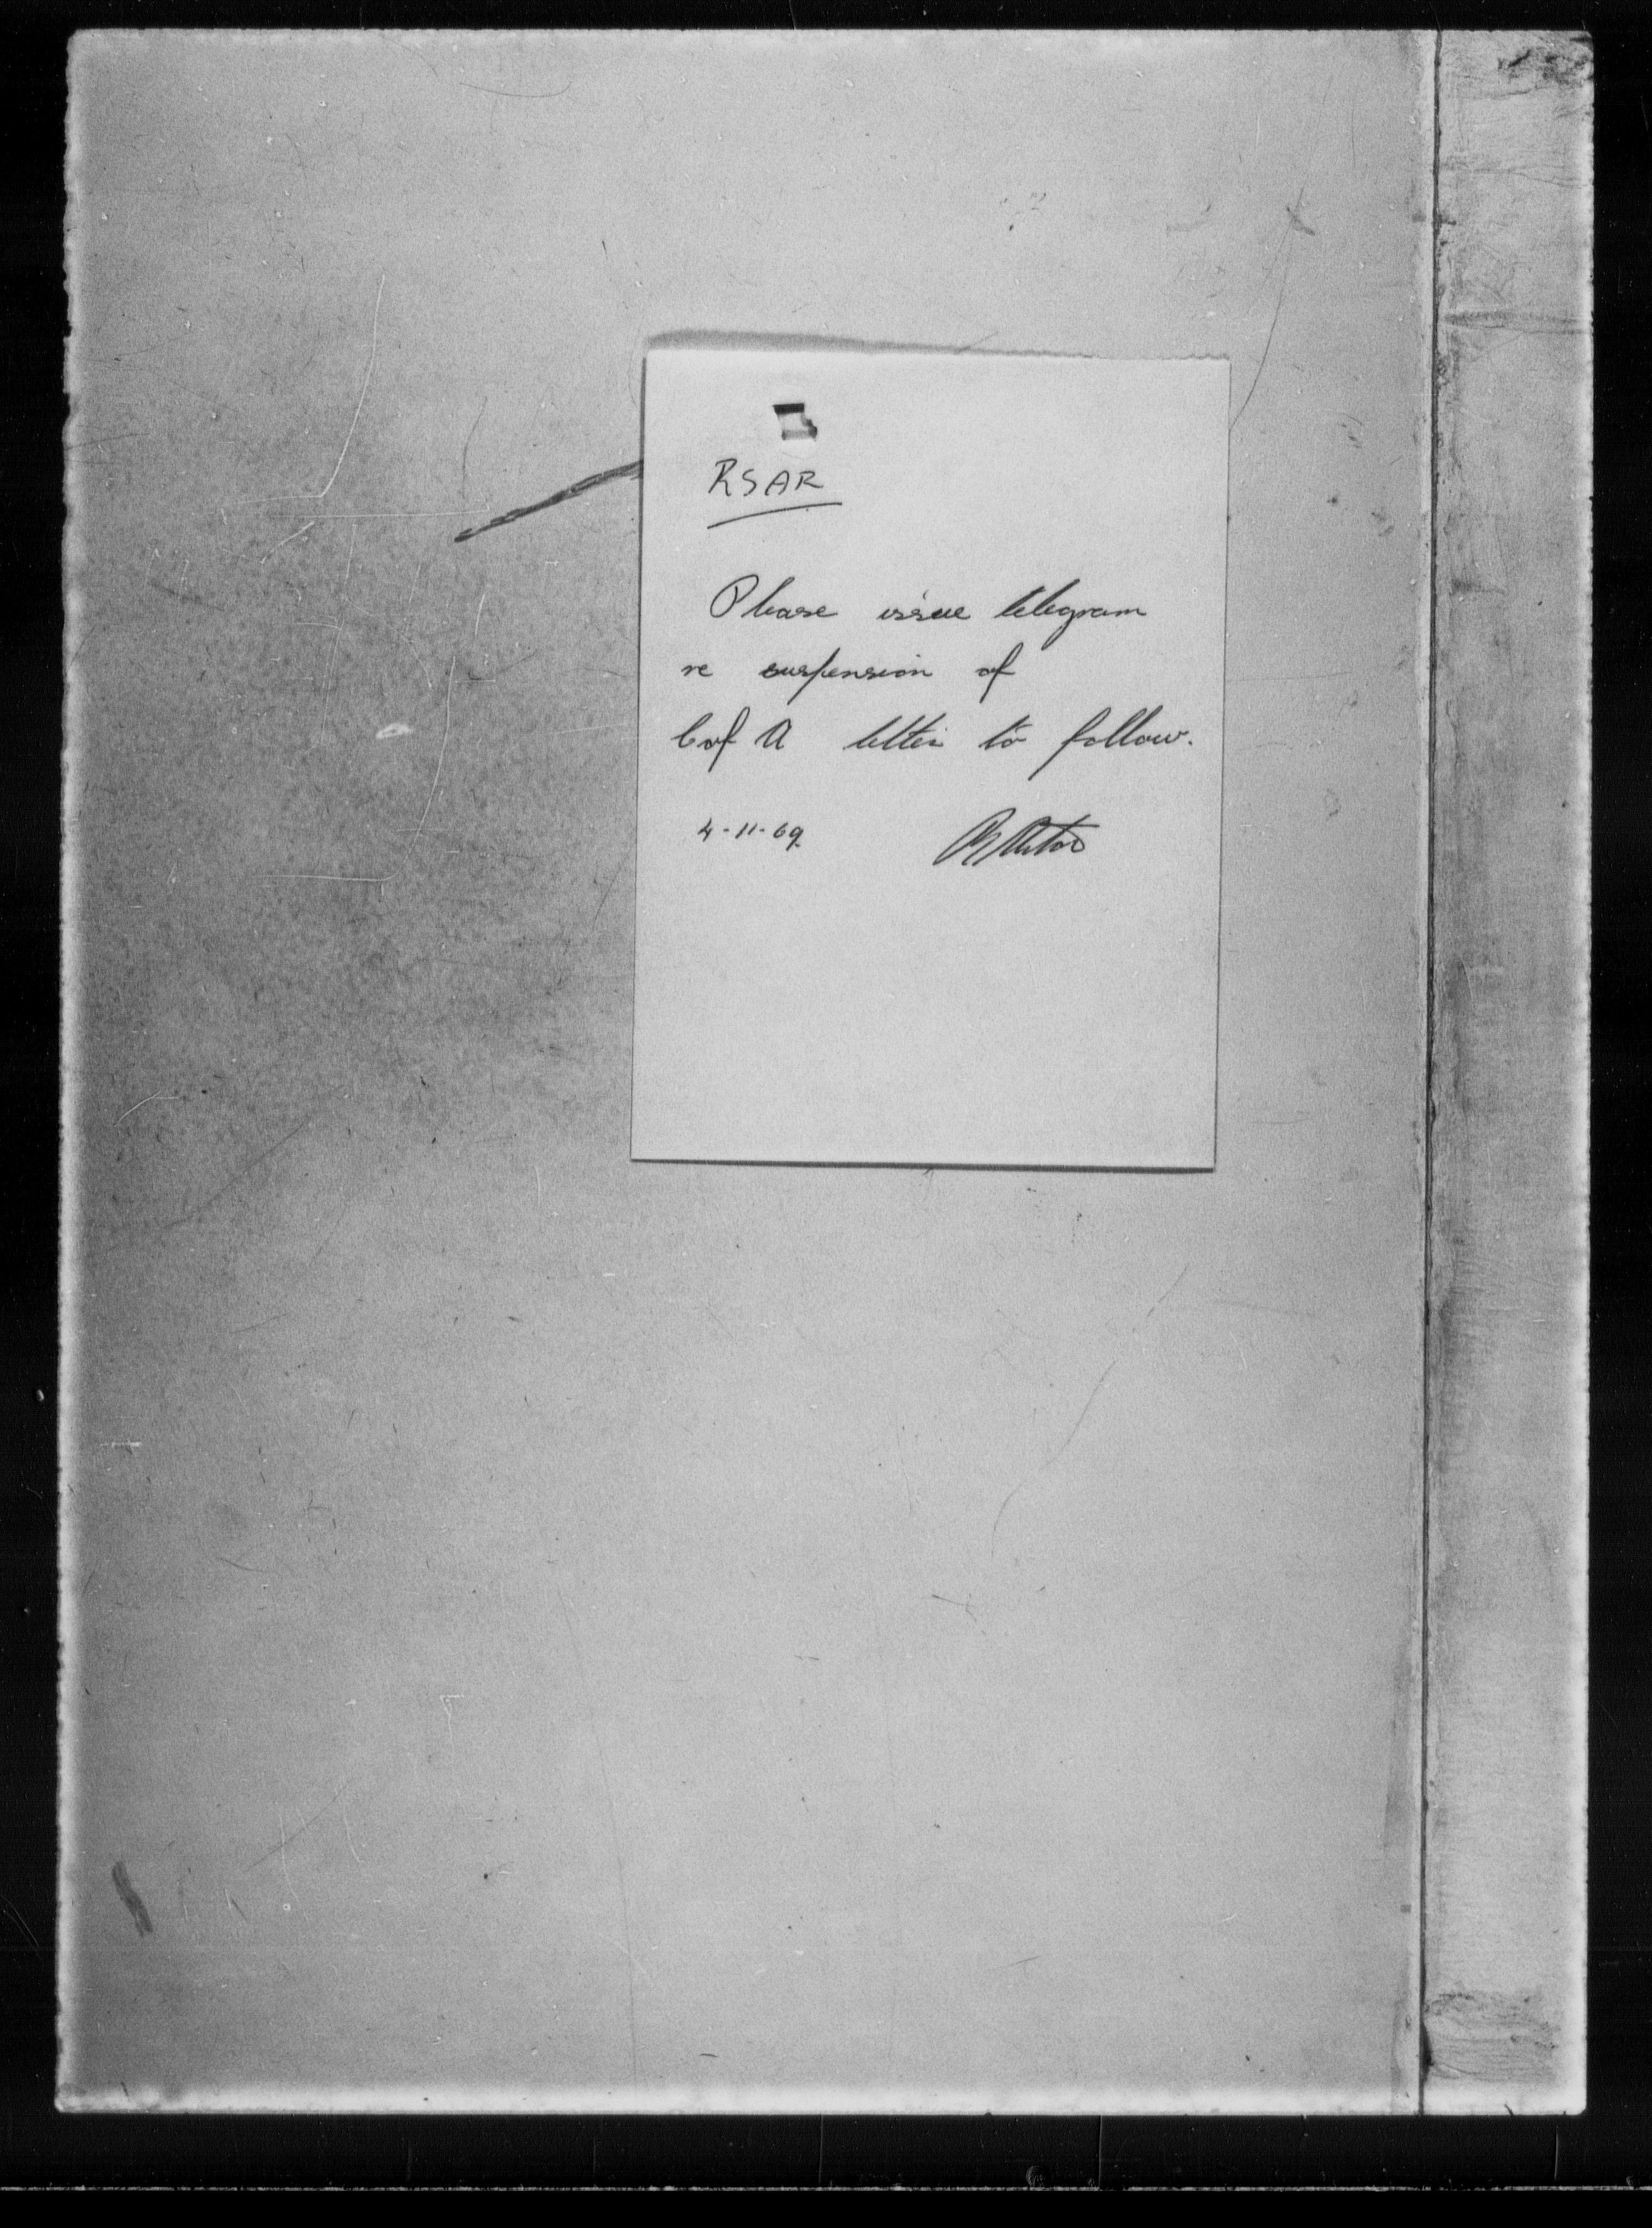 RSAR
Please issue telegram
re suspension of
C of A letter to follow.
4-11-69.